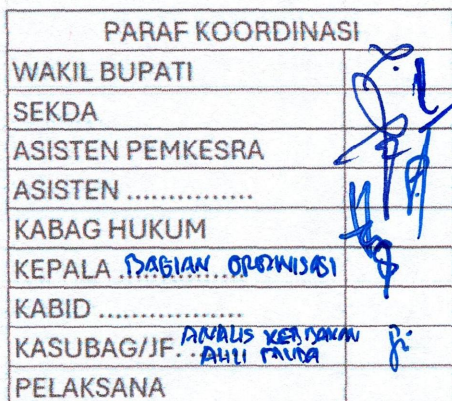 PARAF KOORDINASI
WAKIL BUPATI
SEKDA
ASISTEN PEMKESRA
ASISTEN ...............
KABAG HUKUM
KEPALA BAGIAN ORGANISASI
KABID ................
KASUBAG/JF. ANALIS KEBIJAKAN
AHLI MUDA
PELAKSANA